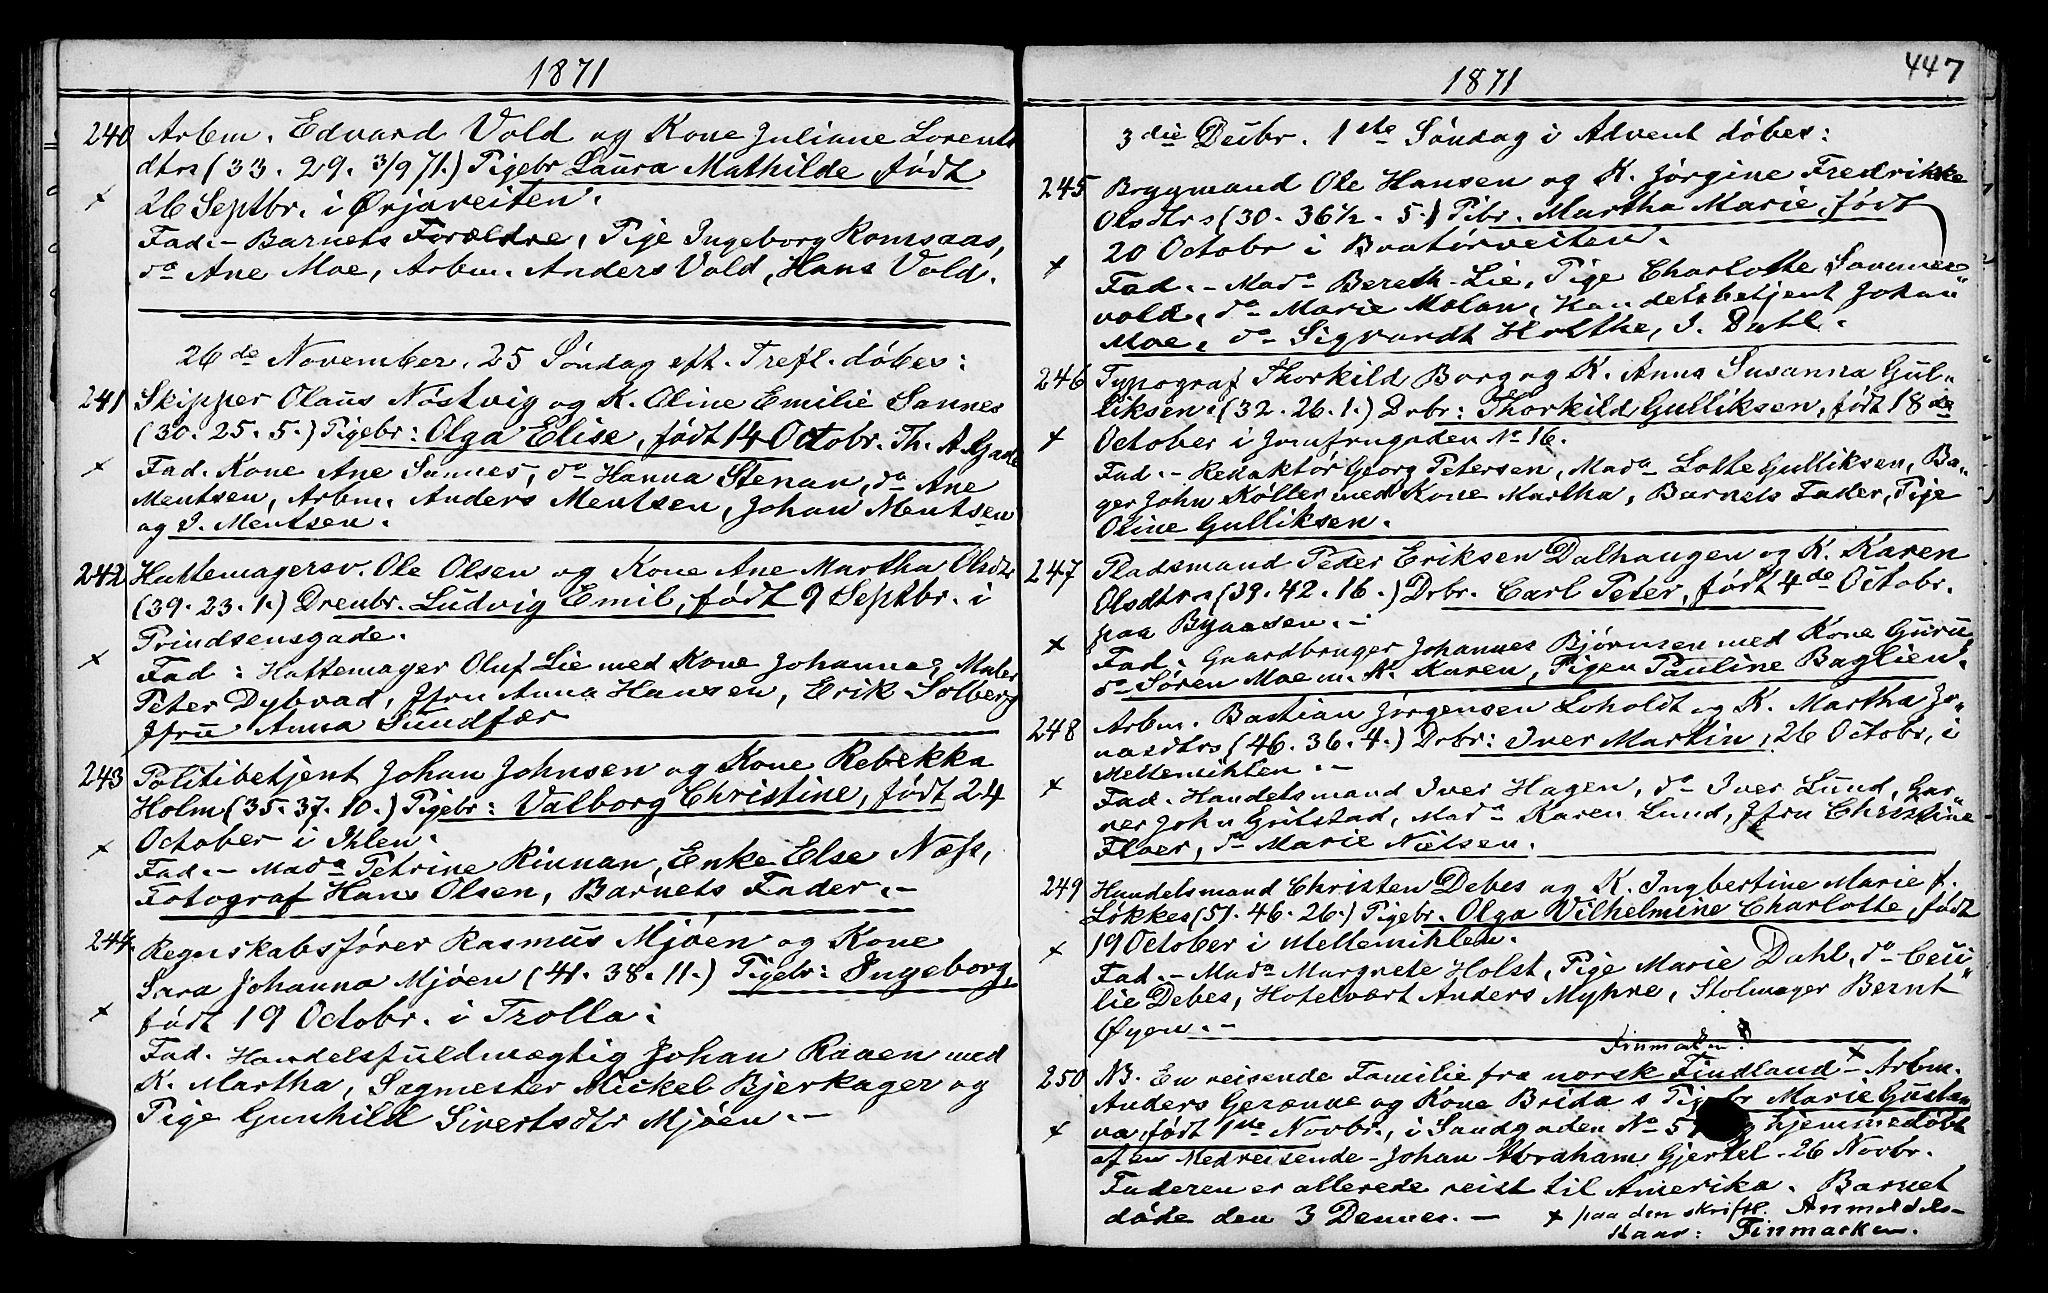 1871
240 Arbm. Edvard Vold og Kone Juliane Lorents
dtrs (33. 29. 3/9 71.) Pigebr Laura Mathilde, født
+ 26 Septbr. i Ørjaveiten.
Fad. – Barnets Forældre, Pige Ingeborg Romsaas,
do Ane Moe, Arbm. Anders Vold, Hans Vold.
26de November. 25 Søndag eft. Trefl. døbes:
241 Skipper Olaus Nøstvig og K. Oline Emilie Sannes
(30. 25. 5.) Pigebr: Olga Elise, født 14 Octobr. Th. A. Gade
+ Fad. Kone Ane Sannes, do Hanna Stenan, do Ane
Mentsen, Arbm. Anders Mentsen, Johan Mentsen
og I. Mentsen.
242 Hattemagersv. Ole Olsen og Kone Ane Martha Olsdtr
(39. 23. 1.) Drenbr. Ludvig Emil, født 9 Septbr. i
Prindsensgade.
+ Fad: Hattemager Oluf Lie med Kone Johanna, Maler
Peter Dybvad, Jfru Anna Hansen, Erik Solberg
Jfru Anna Sundfær
243 Politibetjent Johan Johnsen og Kone Rebekka
Holm (35. 37. 10.) Pigebr: Valborg Christine, født 24
October i Ihlen.
+ Fad. – Mada Petrine Rinnan, Enke Else Næss,
Fotograf Hans Olsen, Barnets Fader. –
244. Regnskabsfører Rasmus Mjøen og Kone
Sara Johanna Mjøen (41. 38. 11.) Pigebr: Ingeborg,
+ født 19 Octobr. i Trolla:
Fad. Handelsfuldmægtig Johan Raaen med
K. Martha, Sagmester Mickel Bjerkager og
Pige Gunhild Sivertsdtr Mjøen. –
447
1871
3die Decbr. 1ste Søndag i Advent døbes:
245 Brygmand Ole Hansen og K. Jørgine Fredrikke
Olsdtrs (30. 36½. 5.) Pibr. Martha Marie, født
20 Octobr i Bratørveiten.
+ Fad. – Mada Bereth Lie, Pige Charlotte Sammes-
vold, do Marie Molan, Handelsbetjent Johan
Moe, do Sigvardt Holthe, I. Dahl.
246 Typograf Thorkild Borg og K. Anna Susanna Gul-
liksen (32. 26. 1.) Drbr: Thorkild Gulliksen, født 18de
+ October i Jomfrugaden No 16.
Fad. – Redaktør Georg Petersen, Mada Lotte Gulliksen, Ba-
ger John Køller med Kone Martha, Barnets Fader, Pige
Oline Gulliksen.
247 Pladsmand Peter Eriksen Dalhaugen og K. Karen
Olsdtrs (39. 42. 16.) Drbr. Carl Peter, født 4de Octobr.
paa Byaasen. –
+ Fad. Gaardbruger Johannes Bjørnsen med Kone Guru,
do Søren Moe m. K. Karen, Pigen Pauline Baglien.
248 Arbm. Bastian Jørgensen Loholdt og K. Martha Jo-
nasdtrs (46. 36. 4.) Drbr: Iver Martin, 26 Octobr, i
Mellemihlen. –
+ Fad. Handelsmand Iver Hagen, do Iver Lund, Gar-
ver John Grilstad, Mada Karen Lund, Jfru Christine
Floer, do Marie Nielsen.
249 Handelsmand Christen Debes og K. Ingbertine Marie f.
Løkkes (51. 46. 26.) Pigebr. Olga Vilhelmine Charlotte, født
+ 19 October i Mellemihlen.
Fad. – Mada Margrete Holst, Pige Marie Dahl, do Ceci-
lie Debes, Hotelvært Anders Myhre, Stolmager Bernt
Øyen. –
Finmarken?
250 NB. En reisende Familie fra norsk Findland + Arbm.
Anders Gerænne og Kone Brida s Pigebr Marie Gusta
+ va, født 1ste Novbr., i Sandgaden No 51 og hjemmedøbt
af en Medreisende – Johan Abraham Gjertel. 26 Novbr.
Faderen er allerede reist til Amerika. Barnet
døde den 3 Dennes. – + paa den skriftl. Anmeldels-
staar: Finmarken.